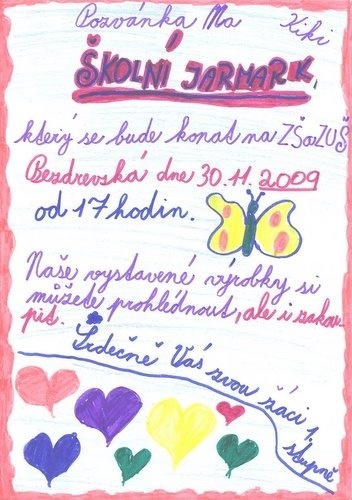 Pozvánka Na
Kiki
ŠKOLNÍ JARMARK,
který se bude konat na ZŠaZUŠ
Bezdrevská dne 30.11.2009
od 17 hodin.
Naše vystavené výrobky si
můžete prohlédnout, ale i zakou-
pit.
Srdečně Vás zvou žáci 1.
stupně